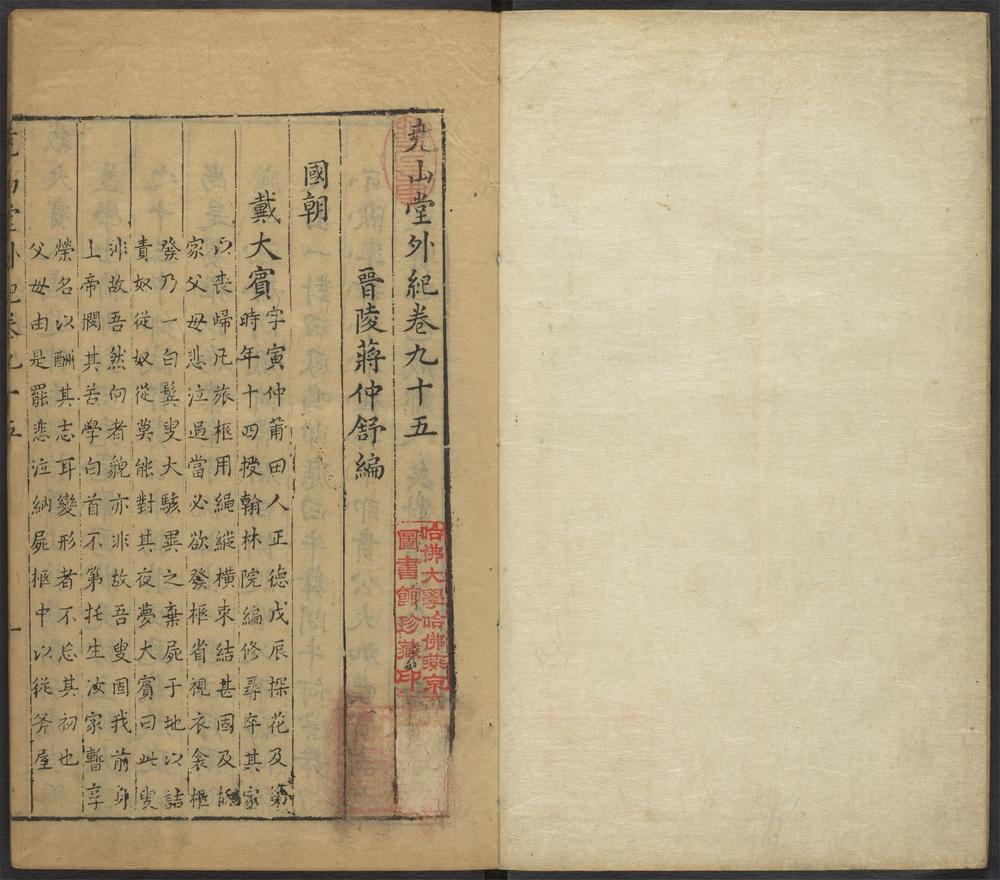 堯山堂外紀卷九十五
晉陵蔣仲舒編
國朝
戴大賓
字寅仲莆田人正德戊辰探花及第
時年十四授翰林院編修尋卒其家
以喪歸凡旅柩用繩縱橫束結甚固及
家父母悲泣過當必欲發柩省視衣衾柩
發乃一白鬂叟大駭異之棄屍于地以詰
責奴從奴從莫能對其夜夢大賓曰此叟
非故吾然向者貌亦非故吾叟固我前身
上帝閔其苦學白首不第托生汝家暫享
榮名以酬其志耳變形者不忘其初也
父母由是罷悲泣納屍柩中以從斧屋
堯山堂外紀卷九十五
一
哈佛大學哈佛燕京
圖書館珍藏印